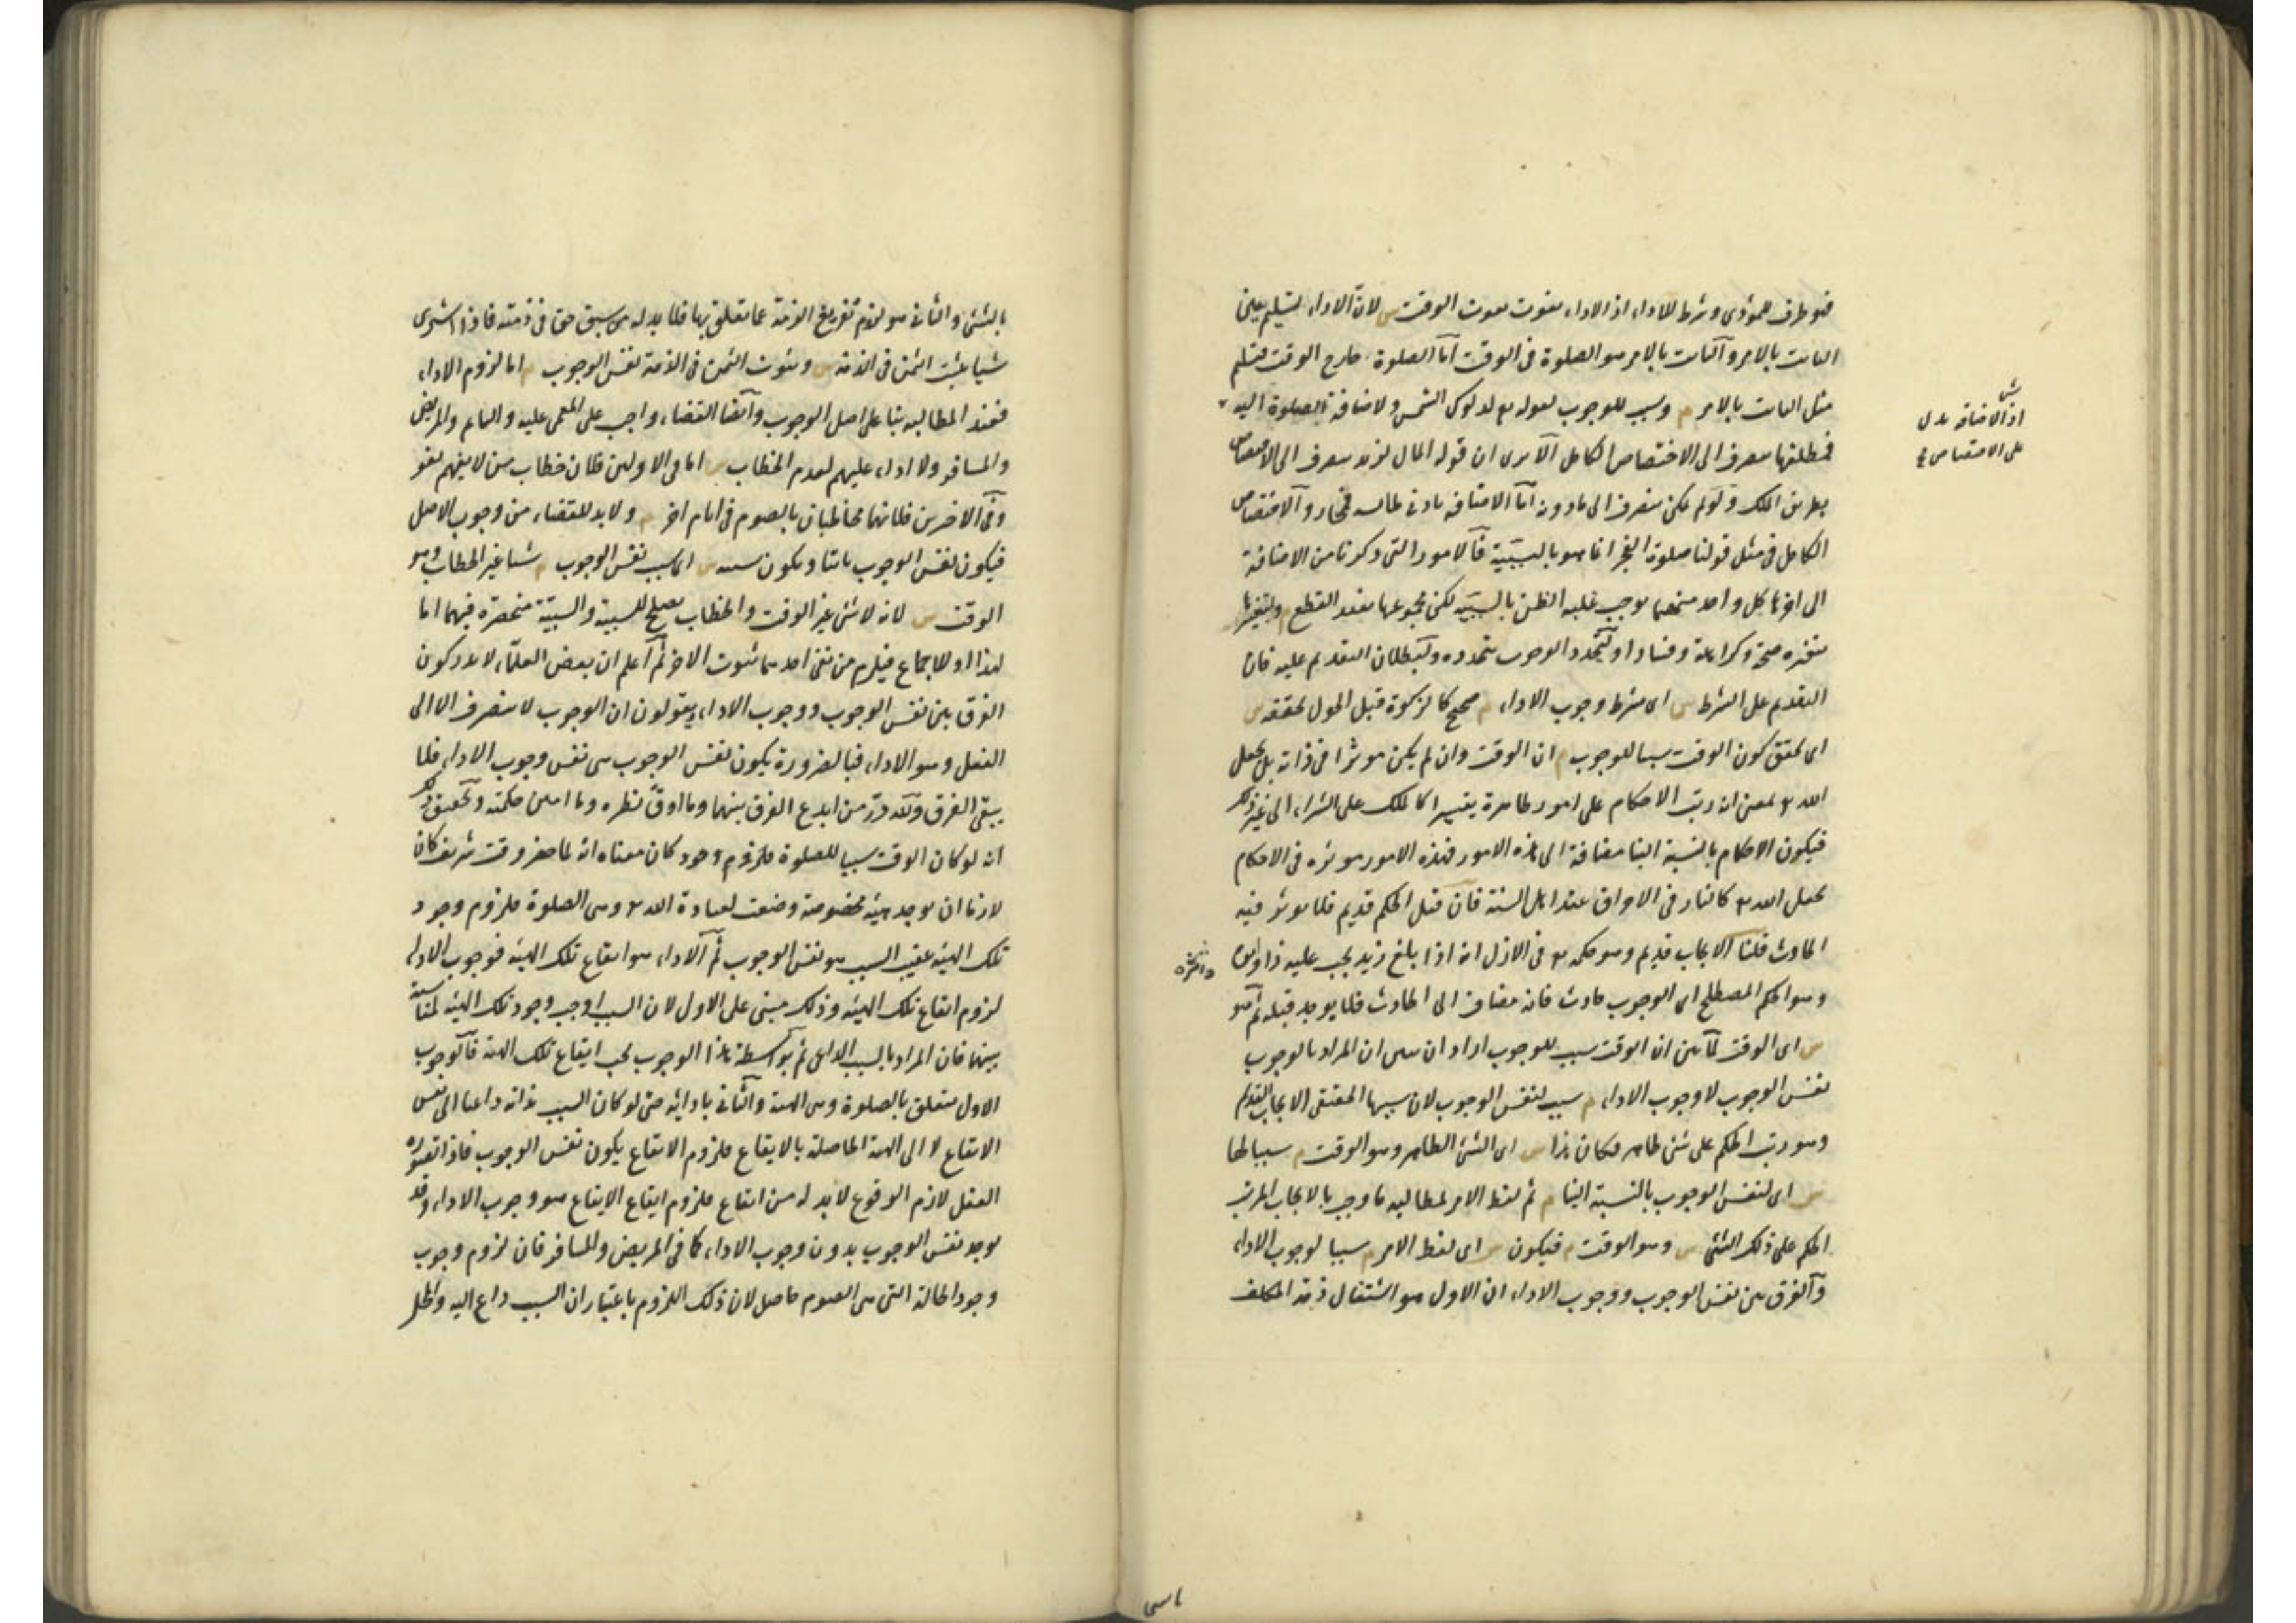 فهو ظرف للمؤدى وشرط للاداء اذ الاداء يفوت بفوت الوقت س لان الاداء تسليم عين
الثابت بالامر والثابت بالامر هو الصلوة فى الوقت اما الصلوة خارج الوقت فتسليم
مثل الثابت بالامر م وسبب للوجوب لقوله تع لدلوك الشمس ولاضافة الصلوة اليه
ش
اذ الاضافة تدل
على الاختصاص
فمطلقها ينصرف الى الاختصاص الكامل الا يرى ان قوله المال لزيد ينصرف الى الاختصاص
بطريق الملك ولو لم يمكن ينصرف الى ما دونه اما الاضافة بادنى ملابسة فمجاز والاختصاص
الكامل فى مثل قولنا صلوة الفجر انما هو بالسببية فالامور التى ذكرنا من الاضافة
الى اخرها كل واحد منها يوجب غلبة الظن بالسببية لكن مجموعها يفيد القطع م ولتغيرها
بتغيره صحة وكراهة وفسادا ولتجدد الوجوب بتجدده ولبطلان التقديم عليه فان
التقديم على الشرط س اى شرط وجوب الاداء م صحيح كالزكوة قبل الحول تحققه س
اى تحقق كون الوقت سببا للوجوب م ان الوقت وان لم يكن مؤثرا فى ذاته بل بجعل
الله تع بمعنى انه رتب الاحكام على امور ظاهرة تيسيرا كالملك على الشراء الى غير ذلك
فيكون الاحكام بالنسبة الينا مضافة الى هذه الامور فهذه الامور مؤثرة فى الاحكام
بجعل الله تع كالنار فى الاحراق عند اهل السنة فان قيل الحكم قديم فلا يؤثر فيه
الحادث قلنا الايجاب قديم وهو حكمه تع فى الازل انه اذا بلغ زيد يجب عليه ذا واثره
وهو الحكم المصطلح اى الوجوب حادث فانه مضاف الى الحادث فلا يوجد قبله ثم هو
س اى الوقت لما بين ان الوقت سبب للوجوب اراد ان يبين ان المراد بالوجوب
نفس الوجوب لا وجوب الاداء م سبب لنفس الوجوب لان سببها الحقيقى الايجاب القديم
وهو رتب الحكم على شئ ظاهر فكان هذا س اى الشئ الظاهر وهو الوقت م سببا لها
س اى لنفس الوجوب بالنسبة الينا م ثم لفظ الامر لمطالبة ما وجب بالايجاب المرتب
الحكم على ذلك الشئ س وهو الوقت م فيكون س اى لفظ الامر م سببا لوجوب الاداء
والفرق بين نفس الوجوب ووجوب الاداء ان الاول هو اشتغال ذمة المكلف
بالشئ والثانى هو لزوم تفريغ الذمة عما تعلق بها فلا بد له من سبق حق فى ذمته فاذا اشترى
شيا يثبت الثمن فى الذمة س وثبوت الثمن فى الذمة نفس الوجوب م اما لزوم الاداء
فعند المطالبة بناء على اصل الوجوب وايضا القضاء واجب على المغمى عليه والنائم والمريض
والمسافر ولا اداء عليهم لعدم الخطاب س اما فى الاولين فلان خطاب من لا يفهم لغو
وفى الاخرين فلانهما مخاطبان بالصوم فى ايام اخر م ولا بد للقضاء من وجوب الاصل
فيكون نفس الوجوب ثابتا ويكون سببه س اى سبب نفس الوجوب م شيا غير الخطاب وهو
الوقت س لانه لا شئ غير الوقت والخطاب يصلح للسببية والسببية منحصرة فيهما اما
لهذا او للاجماع فيلزم من نفى احدهما ثبوت الاخر ثم اعلم ان بعض العلماء لا يدركون
الفرق بين نفس الوجوب ووجوب الاداء ويقولون ان الوجوب لا ينصرف الا الى
الفعل وهو الاداء فبالضرورة يكون نفس الوجوب هى نفس وجوب الاداء فلا
يبقى الفرق ولله در من ابدع الفرق بينهما وما ادق نظره وما امتن حكمته وتحقيق ذلك
انه لو كان الوقت سببا للصلوة فلزوم وجود كان معناه انه لما حضر وقت شريف كان
لازما ان يوجد هيئة مخصوصة وضعت لعبادة الله تع وهى الصلوة فلزوم وجود
تلك الهيئة عقيب السبب هو نفس الوجوب ثم الاداء هو ايقاع تلك الهيئة فوجوب الاداء
لزوم ايقاع تلك الهيئة وذلك مبنى على الاول لان السبب اوجب وجود تلك الهيئة لمناسبة
بينهما فان المراد بالسبب الداعى ثم بواسطة هذا الوجوب يجب ايقاع تلك الهيئة فالوجوب
الاول يتعلق بالصلوة وهى الهيئة والثانى بادائه حتى لو كان السبب بذاته داعيا الى نفس
الايقاع لا الى الهيئة الحاصلة بالايقاع فلزوم الايقاع يكون نفس الوجوب فاذا تصوره
العقل لازم الوقوع لا بد له من ايقاع فلزوم ايقاع الايقاع هو وجوب الاداء وقد
يوجد نفس الوجوب بدون وجوب الاداء كما فى المريض والمسافر فان لزوم وجوب
وجود الحالة التى هى الصوم حاصل لان ذلك اللزوم باعتبار ان السبب داع اليه والمحل